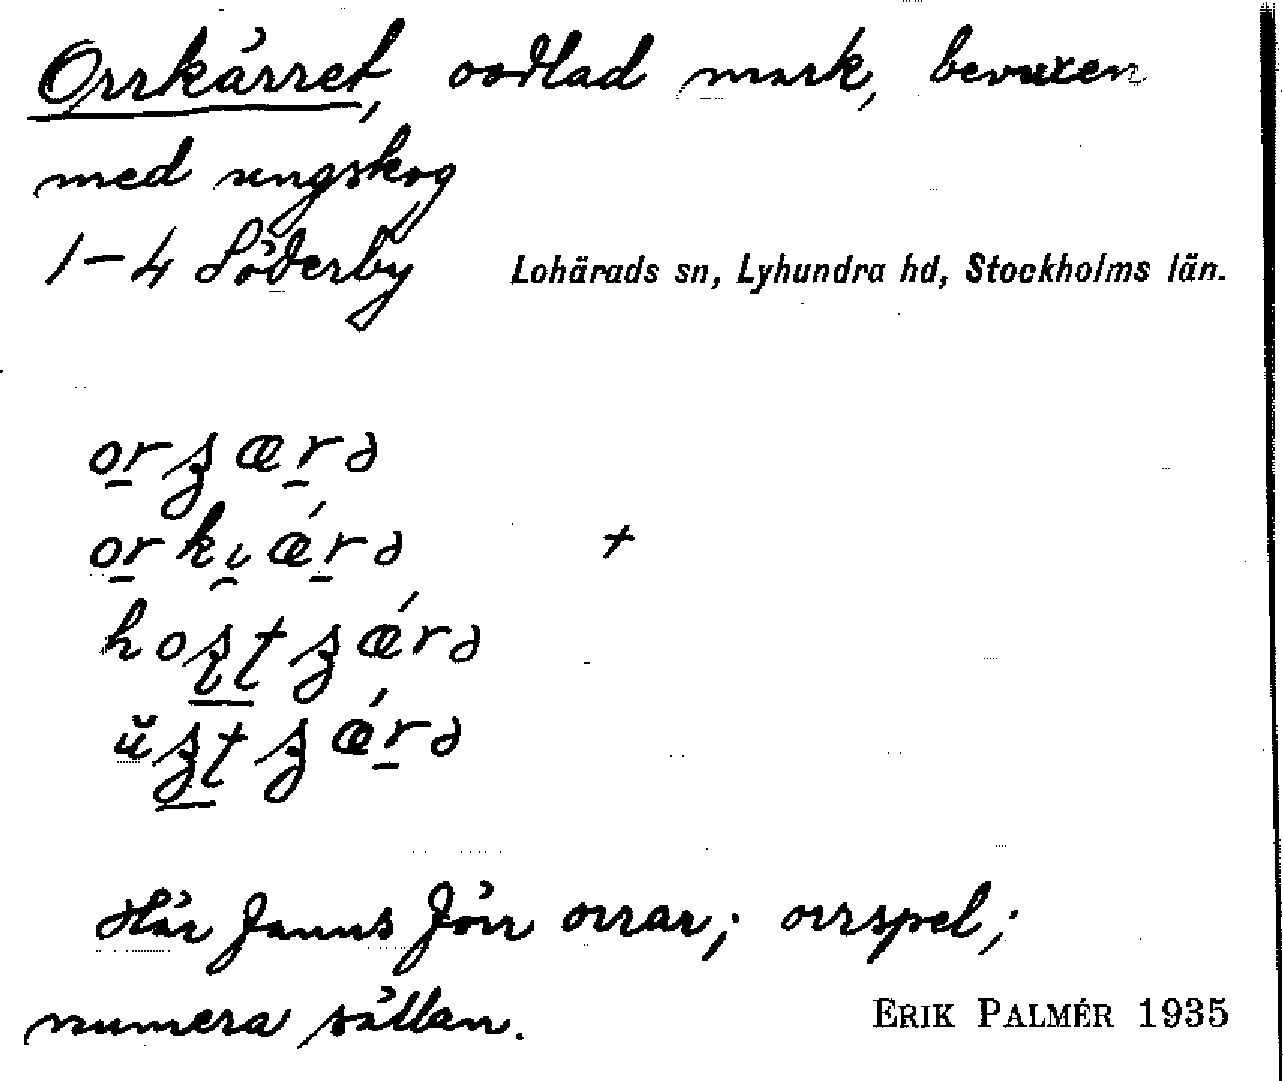 Orrkärret, oodlad mark, bevuxen
med ungskog
1-4 Söderby Lohärads sn, Lyhundra hd, Stockholms län.
+
Här fanns förr orrar; orrspel;
numera sällan.
ERIK PALMÉR 1935